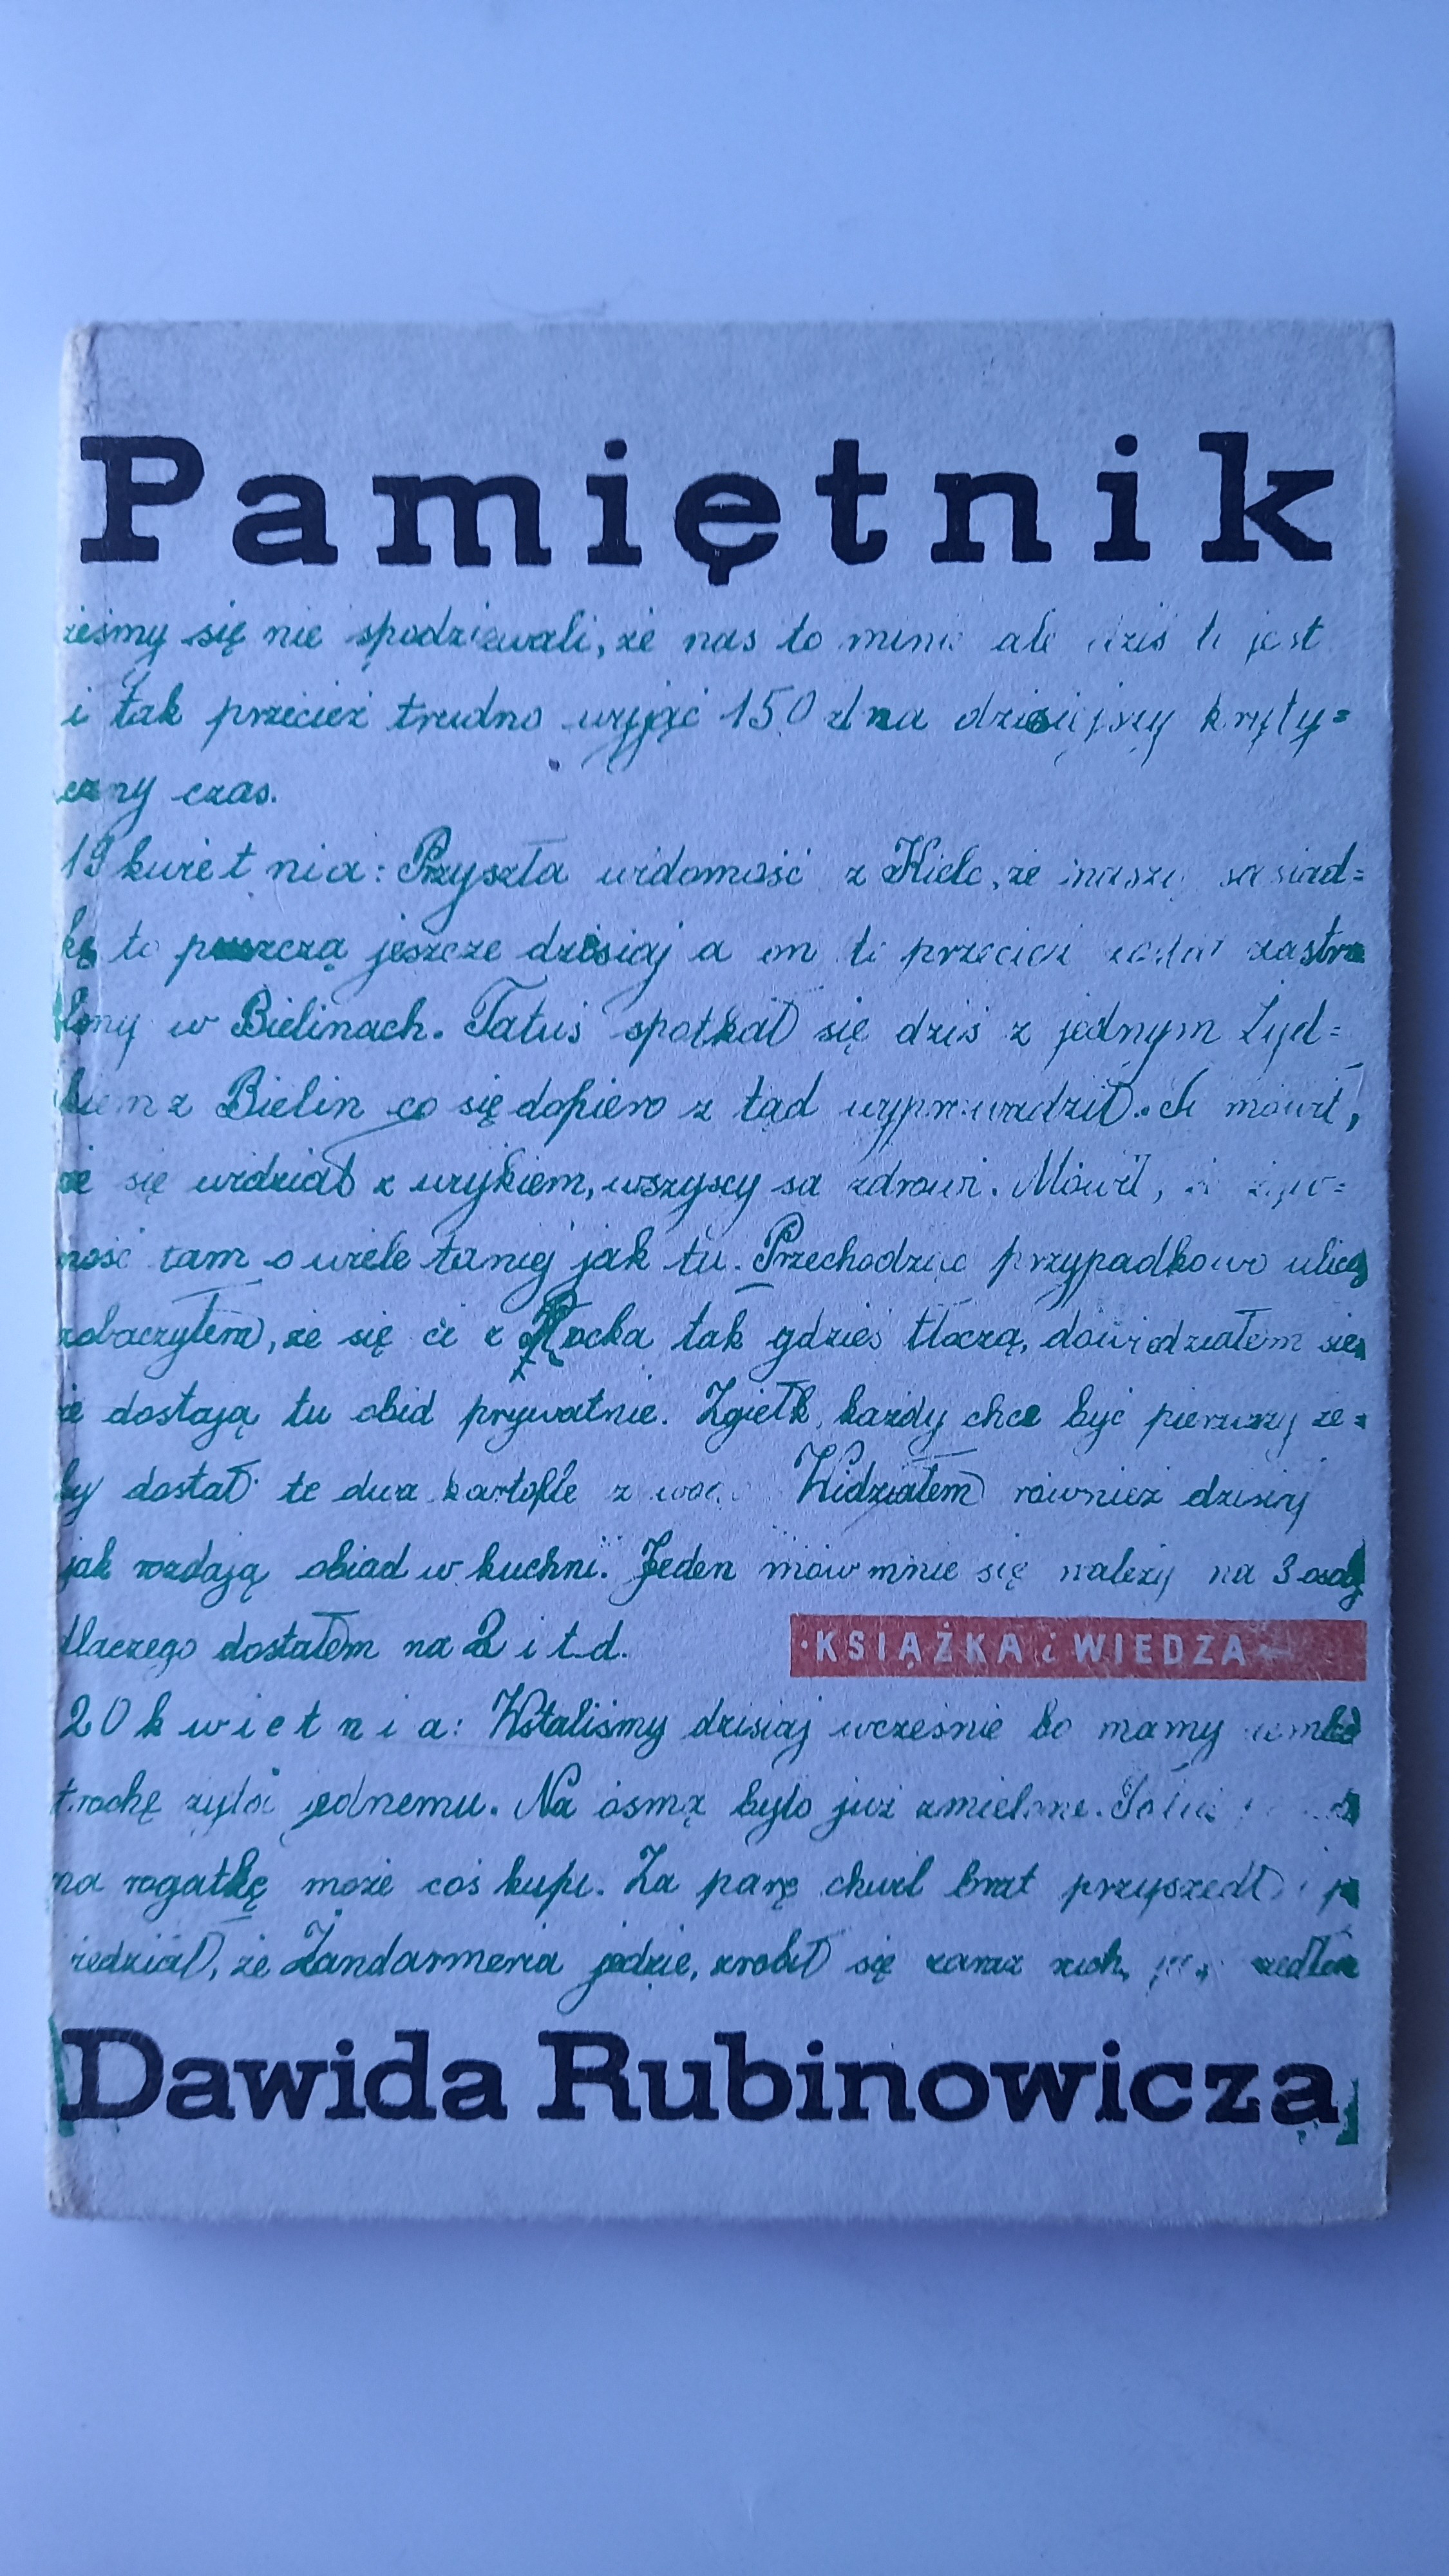 Pamiętnik
żeśmy się nie spodziewali, że nas to minie ale dziś to jest
i tak przecież trudno wyjąć 150 zł na dzisiejszy kryty=
czny czas.
19 kwietnia: Przyszła widomość z Kielc, że sąsiad=
kę to puszczą jeszcze dzisiaj a on to przecież został zastrze
lony w Bielinach. Tatuś spotkał się dziś z jednym Żyd=
kiem z Bielin co się dopiero z tąd wyprowadził. mówił,
że się widział z wujkiem, wszyscy są zdrowi. Mówił, że żyw=
ność tam o wiele taniej jak tu. Przechodząc przypadkowo ulicą
zobaczyłem, że się ci z Płocka tak gdzieś tłoczą, dowiedziałem się
że dostają tu obid prywatnie. Zgiełk, każdy chce być pierwszy że=
by dostał te dwa kartofle z Widziałem również dzisiaj
jak rozdają obiad w kuchni. Jeden mówi mnie się należy na 3 osoby
dlaczego dostałem na 2 i t.d.
KSIĄŻKA i WIEDZA
20 kwietnia: Wstaliśmy dzisiaj wcześnie bo mamy
trochę żyta jednemu. Na ósmą było już zmielone. Tatuś
na rogatkę może coś kupi. Za parę chwil brat przyszedł i po
wiedział, że Żandarmeria jedzie, zrobił się zaraz ruch,
Dawida Rubinowicza